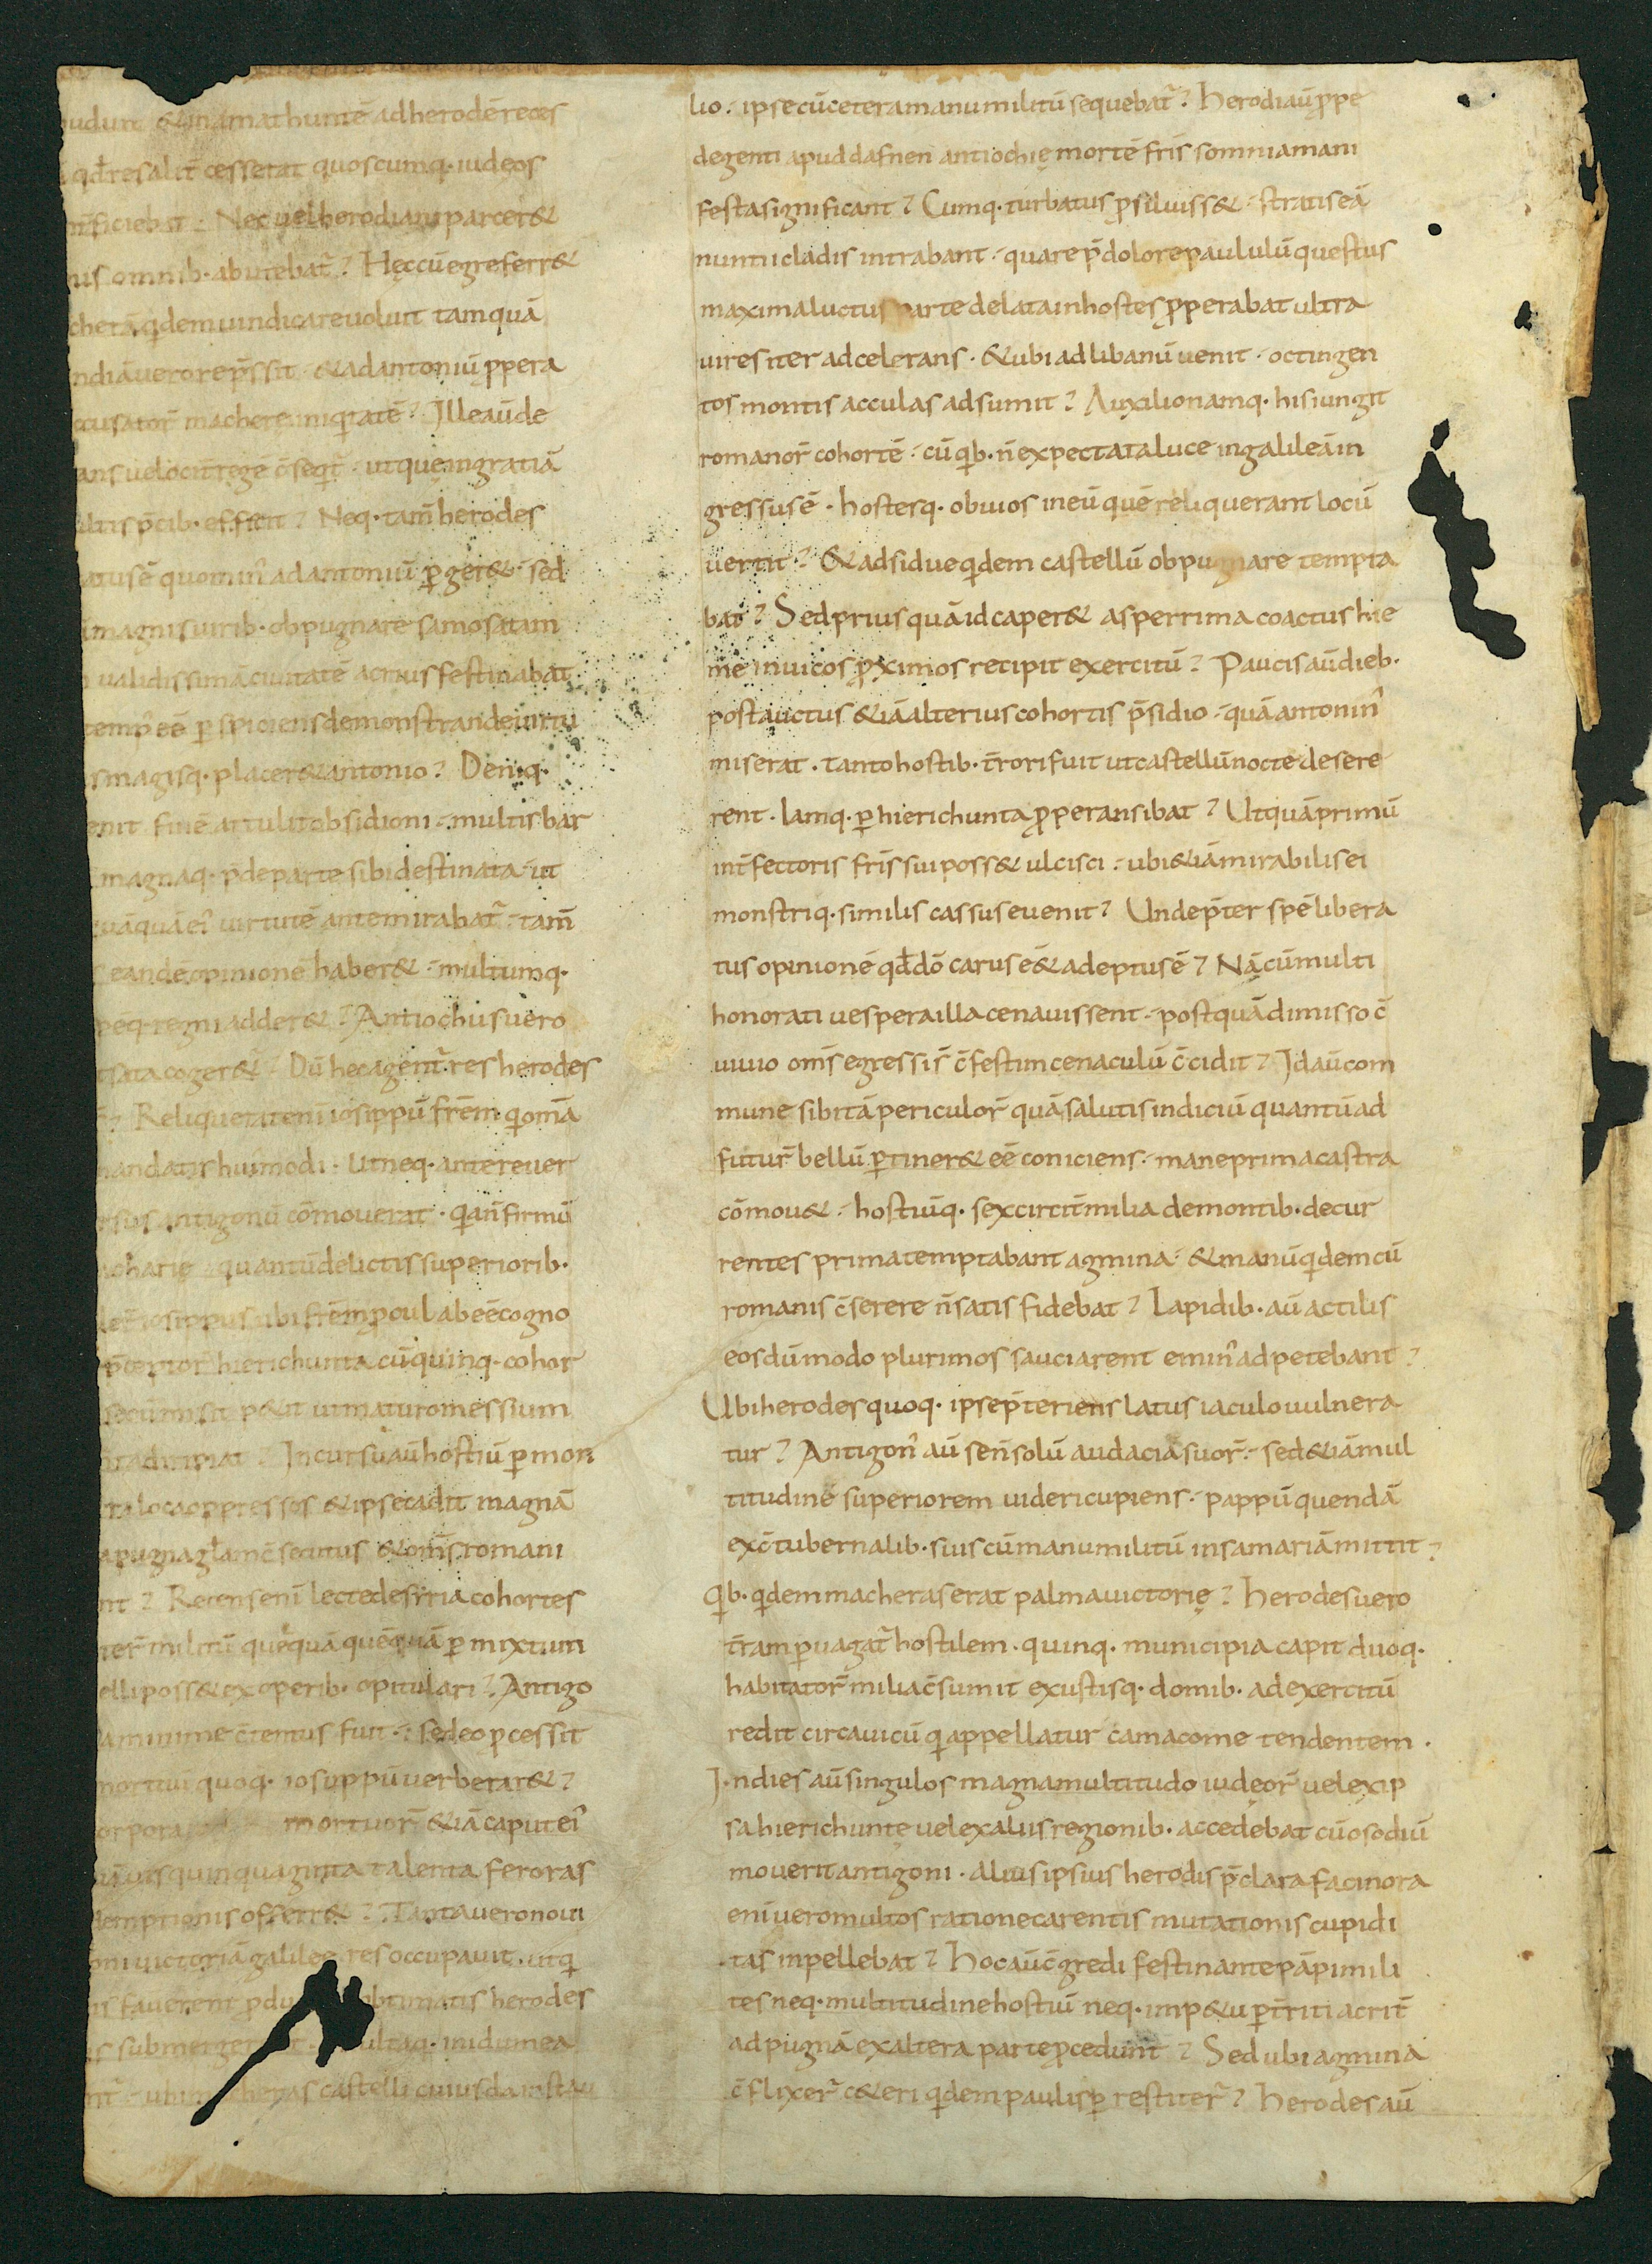 udunt & inamathuntē ad herodē reces
qđ resalit̄ cesserat quoscumq· iudeos
int̄ficiebat · Nec uel herodianis parcer&
nis omnib· abutebat̄ ? Hęc cū egre ferr&
cherā q̇dem uindicare uoluit tamquā
ndiā uero rep̄ssit · & ad antoniū ꝓpera
ccusator̄ machere iniq̇tatē ? Ille aū de
ans uelocit̄ regē c̄seq̇t̄ · utque in gratiā
ultis p̄cib· efficit ? Neq· tam̄ herodes
atus ē quomin᾽ ad antoniū ꝑger& · sed
magnis uirib· obpugnare samosatam
ualidissimā ciuitatē acrius festinabat
temp᾽ eē ꝑspiciens demonstrande uirtu
s magisq· placer& antonio ? Deniq·
enit finē attulit obsidioni · multis bar
magnaq· p̄de parte sibi destinata · ut
uāquā ei᾽ uirtutē ante mirabat̄ · tam̄
eandē opinionē haber& · multumq·
peq· regni adder& ? Antiochus uero
sata coger& · Dū hec agent̄ res herodes
? Reliquerat enī iosippū frēm q̇ omā
mandatis hui᾽modi · Ut neq· ante reuer
rsus antigonū cōmouerat · q̇a n̄ firmū
acharię quantū delictis superiorib·
let̄ iosippus ubi frēm ꝓcul abeē cogno
p̄ceptor̄ hierichunta cū quinq· cohor
secū misit p&it ut maturo messium
ta diripiat ? In cursu aū hostiū ꝑ mon
ra loca oppressos & ipse cadit magnā
a pugna gl̄am c̄secutus & om̄s romani
nt ? Recens enī lecte de syria cohortes
ter̄ militū quēquā quēquā ꝑmixtum
elli poss& exoperib· opitulari ? Antigo
a minime c̄tentus fuit · sed eo ꝓcessit
mortuū quoq· iosippū uerberar& ?
orpora mortuor̄ &iā caput ei᾽
uis quinquaginta talenta feroras
demptionis offerr& ? Tanta uero noui
oni uictoriā galilee res occupauit · ut q̇
is fauerent ꝓdu optimatis herodes
as submerger t ultaq· in idumea
nt̄ · ubi m heras castelli cuiusdā instau
lio · ipse cū cetera manu militū sequebat̄ ? herodi aū ꝓpe
degenti apud dafnen antiochię mortē fr̄is somnia mani
festa significant ? Cumq· turbatus ꝓsiluiss& · stratis eā
nuntii cladis intrabant · quare p̄ dolore paululū questus
maxima luctus parte delata in hostes ꝓperabat ultra
uires iter adcelerans · & ubi ad libanū uenit · octingen
tos montis acculas adsumit ? Auxilio namq· his iungit
romanor̄ cohortē · cū q̇b· n̄ expectata luce in galileā in
gressus ē · hostesq· obuios in eū quē reliquerant locū
uertit ? & adsidue q̇dem castellū obpugnare tempta
bat ? Sed prius quā id caper& asperrima coactus hie
me in uicos ꝓximos recipit exercitū ? Paucis aū dieb·
post auctus &iā alterius cohortis p̄sidio · quā antonin᾽
miserat · tanto hostib· t̄rori fuit ut castellū nocte desere
rent · Iamq· ꝑ hierichunta ꝓperans ibat ? Ut quā primū
int̄fectoris fr̄is sui poss& ulcisci · ubi &iā mirabilis ei
monstriq· similis cassus euenit ? Unde p̄ter spē libera
tus opinionē qđ dō carus ē & adeptus ē ? Nā cū multi
honorati uespera illa cenauissent · postquā dimisso c̄
uiuio om̄s egressi s̄ c̄festim cenaculū c̄cidit ? Id aū com
mune sibi tā periculor̄ quā salutis indiciū quantū ad
futur̄ bellū ꝑtiner& eē coniciens · mane prima castra
cōmou& · hostiūq· sex circit̄ milia de montib· decur
rentes prima temptabant agmina · & manū q̇dem cū
romanis c̄serere n̄ satis fidebat ? Lapidib· aū ac tilis
eos dū modo plurimos sauciarent emin᾽ adpetebant ?
Ubi herodes quoq· ipse p̄teriens latus iaculo uulnera
tur ? Antigon᾽ aū se n̄ solū audacia suor̄ · sed &iā mul
titudine superiorem uideri cupiens · pappū quendā
ex c̄tubernalib· suis cū manu militū in samariā mittit ?
Q̇b· q̇dem macheras erat palma uictorię ? herodes uero
t̄ram ꝑuagat̄ hostilem · quinq· municipia capit duoq·
habitator̄ milia c̄sumit exustisq· domib· ad exercitū
redit circa uicū q̇ appellatur camacome tendentem ·
I·n dies aū singulos magna multitudo iudęor̄ uel ex ip
sa hierichunte uel ex aliis regionib· accedebat cū os odiū
mouerit antigoni · alius ipsius herodis p̄clara facinora
enī uero multos ratione carentis mutationis cupidi
tas inpellebat ? hoc aū c̄gredi festinante pāpi mili
tes neq· multitudine hostiū neq· imp&u ꝑt̄riti acrit̄
ad pugnā ex altera parte ꝓcedunt ? Sed ubi agmina
c̄flixer̄ c&eri q̇dem paulisꝑ restiter̄ ? herodes aū